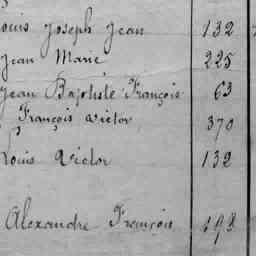 Louis Joseph Jean 132
Jean Marie 225
Jean Baptiste François 63
François Victor 370
Louis Victor 132
Alexandre François 193